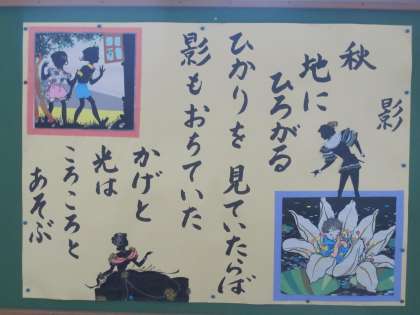 影
秋
地に
ひろがる
ひかりを 見ていたらば
影もおちていた
かげと
光は
ころころと
あそぶ